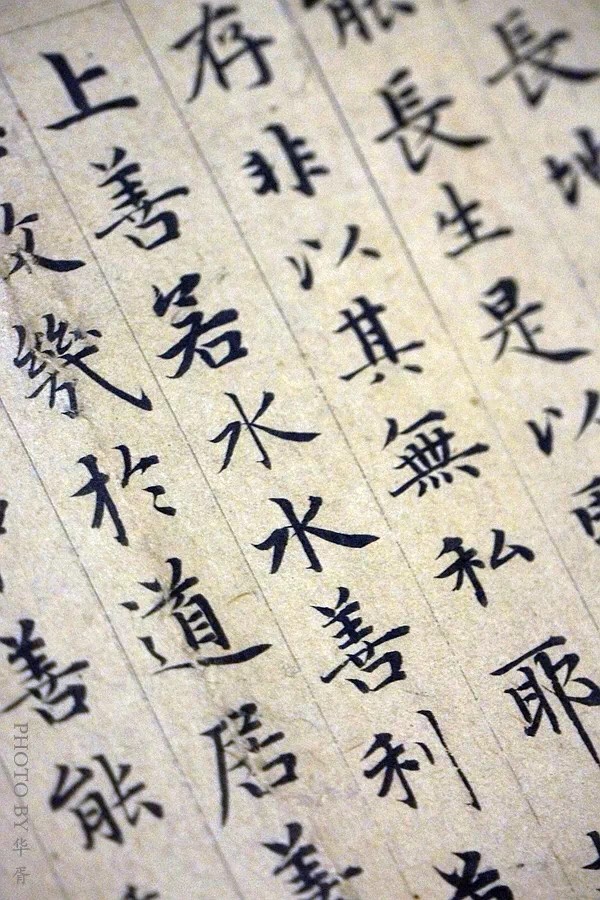 長地
能長生是以
存非以其無私耶
上善若水水善利
故幾於道居善
善能
PHOTO BY 华胥